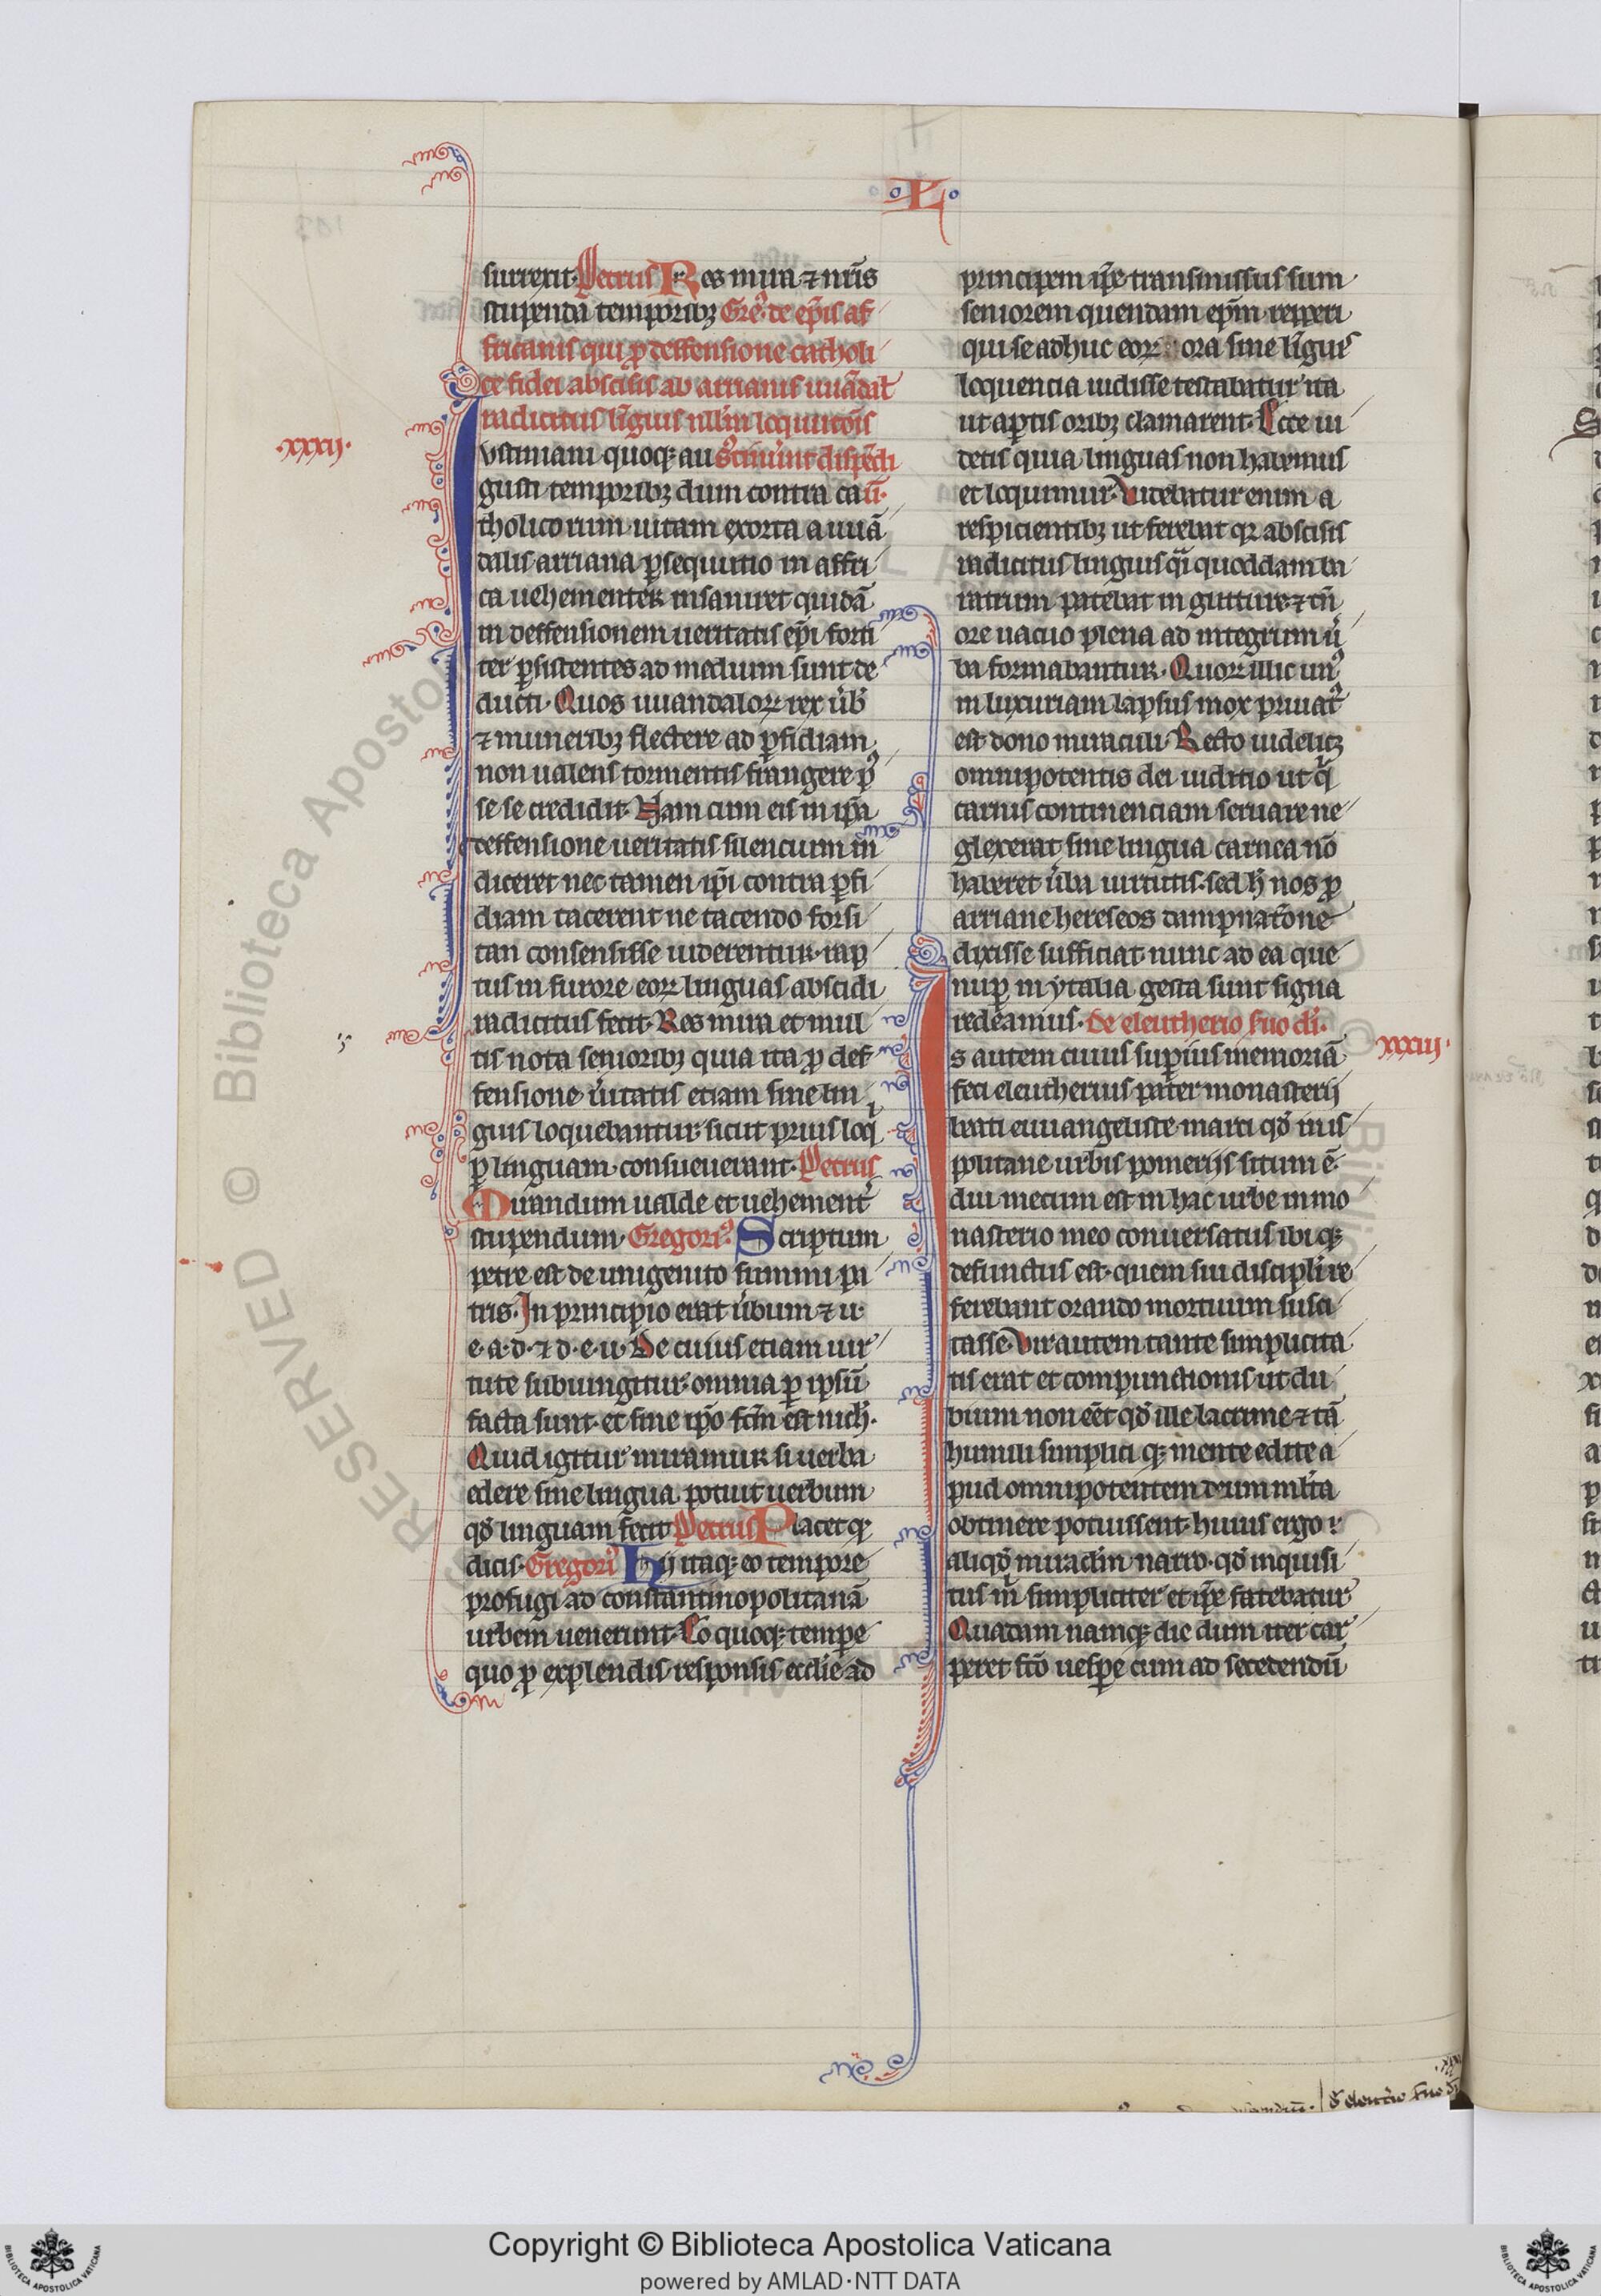 L
surrexit. Petrus Res mira ⁊ nr̄is
stupenda temporibꝫ Gre͛. de ep̄is af
fricanis qui ꝓ deffensione catholi
ce fidei abscisis ab arrianis uuādal̄
radicitus līguis nll̄m locuut̄ōis
.xxxij.
Vstiniani quoqꝫ au
gusti temporibꝫ dum contra ca
tholicorum uitam exorta a uuā
dalis arriana ꝑsequutio in affri
ca uehementer insaniret quidā
in deffensionem ueritatis ep̄i forti
ter ꝑsistentes ad medium sunt de
ducti. Quos uuandaloꝝ rex ub̄
⁊ muneribꝫ flectere ad ꝑfidiam
non ualens tormentis frangere ꝑ
se se credidit. Nam cum eis in ip̄a
deffensione ueritatis silencium in
diceret nec tamen ip̄i contra ꝑfi
diam tacerent ne tacendo forsi
tan consensisse uiderentur. rap
tus in furore eoꝝ linguas abscidi
radicitus fecit. Res mira et mul
tis nota senioribꝫ quia ita ꝓ def
fensione u̾itatis etiam sine lin
guis loquebantur. sicut prius loq̄
ꝑ linguam consueuerant. Petrus
Mirandum ualde et uehement̾
stupendum. Gregori᾽. Scriptum
petre est de unigenito summi pa
tris. In principio erat u̾bum ⁊ u.
e. a. d. ⁊ d. e. u. De cuius etiam uir
tute subiungitur. omnia ꝑ ipsū
facta sunt. et sine ip̄o fc̄m est nich̄.
Quid igitur miramur si uerba
edere sine lingua potuit uerbum
qd̾ linguam fecit Petrus Placet qꝫ
dicis. Gregori᾽ Hij itaqꝫ eo tempore
profugi ad constantinopolitanā
urbem uenerunt. Eo quoqꝫ tempe
quo ꝓ explendis responsis eccl̄ie ad
principem ip̄e transmissus sum
seniorem quendam ep̄m repperi
qui se adhuc eoꝝ ora sine liguis
loquencia uidisse testabatur ita
ut aꝑtis oribꝫ clamarent. Ecce ui
detis quia linguas non habemus
et loquimur. Videbatur enim a
respicientibꝫ ut ferebat qꝛ abscisis
radicitus linguis q̄i quoddam ba
ratrum patebat in gutture ⁊ tn̄
ore uacuo plena ad integrum u̾
ba formabantur. Quoꝝ illic un᾽
in luxuriam lapsus mox priuat᾽
est dono miraculi. Recto uidelicꝫ
omnipotentis dei iuditio ut q̄
carnis continenciam seruare ne
glexerat sine lingua carnea nō
haberet u̾ba uirtutis. sed h̄ nos ꝓ
arriane hereseos dampnat̄one
dixisse sufficiat nunc ad ea que
nuꝑ in ytalia gesta sunt signa
redeamus. de eleutherio suo di̾.
xxxiij.
Is autem cuius suꝑius memoriā
feci eleutherius pater monasterij
beati euuangeliste marci qd̾ in is
politane urbis pomerijs situm ē.
diu mecum est in hac urbe in mo
nasterio meo conuersatus ibiqꝫ
defunctus est. quem sui discipli re
ferebant orando mortuum susci
tasse. Vir autem tante simplicita
tis erat et compunctionis ut du
bium non eēt qd̾ ille lacrime ⁊ tā
humili simplici qꝫ mente edite a
pud omnipotentem deum ml̄ta
obtinere potuissent. huius ergo
aliqd̾ miraclm̄ narro. qd̾ inquisi
tus m̾ simpliciter et ip̄e fatebatur
Quadam namqꝫ die dum iter car
peret fc̄o uesꝑe cum ad secedendū
Copyright © Biblioteca Apostolica Vaticana
powered by AMLAD·NTT DATA